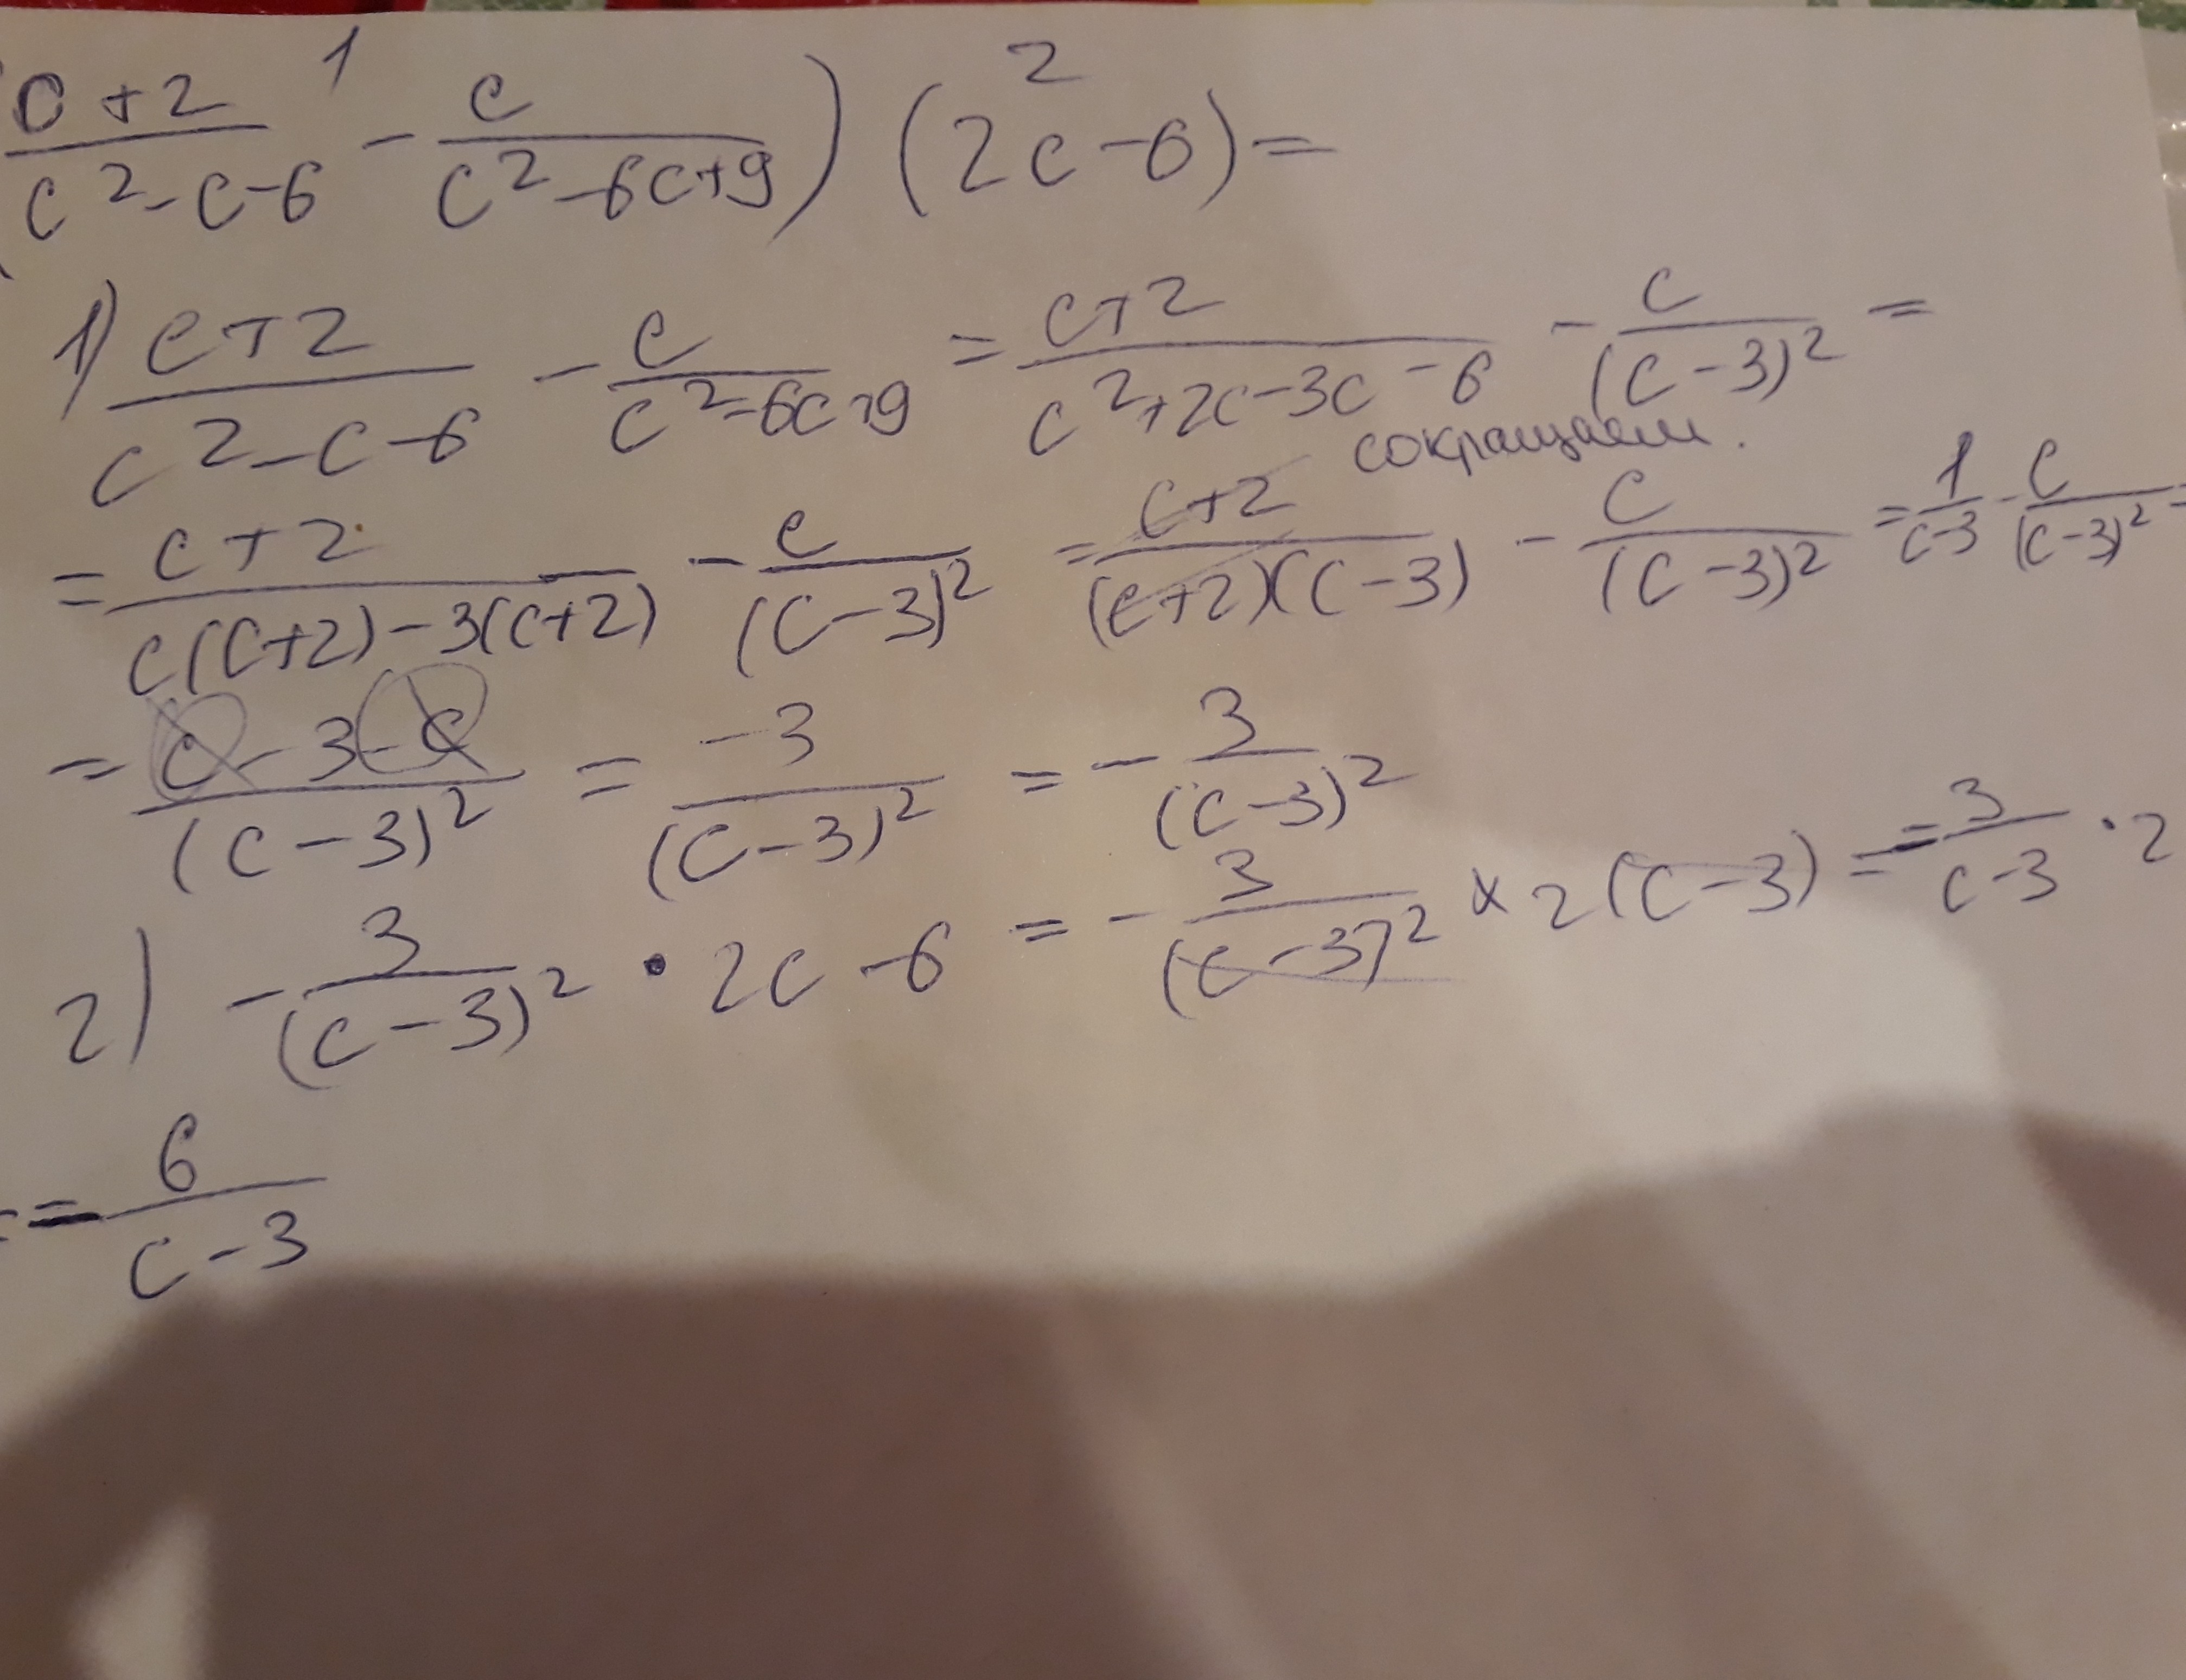 1 2
(c+2/c²-c-6 - c/c²-6c+9) (2c-6) =
1) c+2/c²-c-6 - c/c²-6c+9 = c+2/c²+2c-3c-6 - c/(c-3)² =
сокращаем.
= c+2/c(c+2)-3(c+2) - c/(c-3)² = c+2/(c+2)(c-3) - c/(c-3)² = 1/c-3 - c/(c-3)² =
= c-3-c/(c-3)² = -3/(c-3)² = - 3/(c-3)²
2) - 3/(c-3)² · 2c-6 = - 3/(c-3)² × 2(c-3) = - 3/c-3 · 2
= - 6/c-3